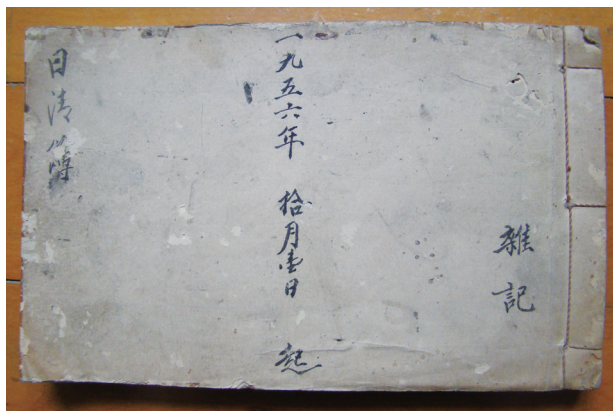 雜記
一九五六年 拾月壹日 起
日清簿